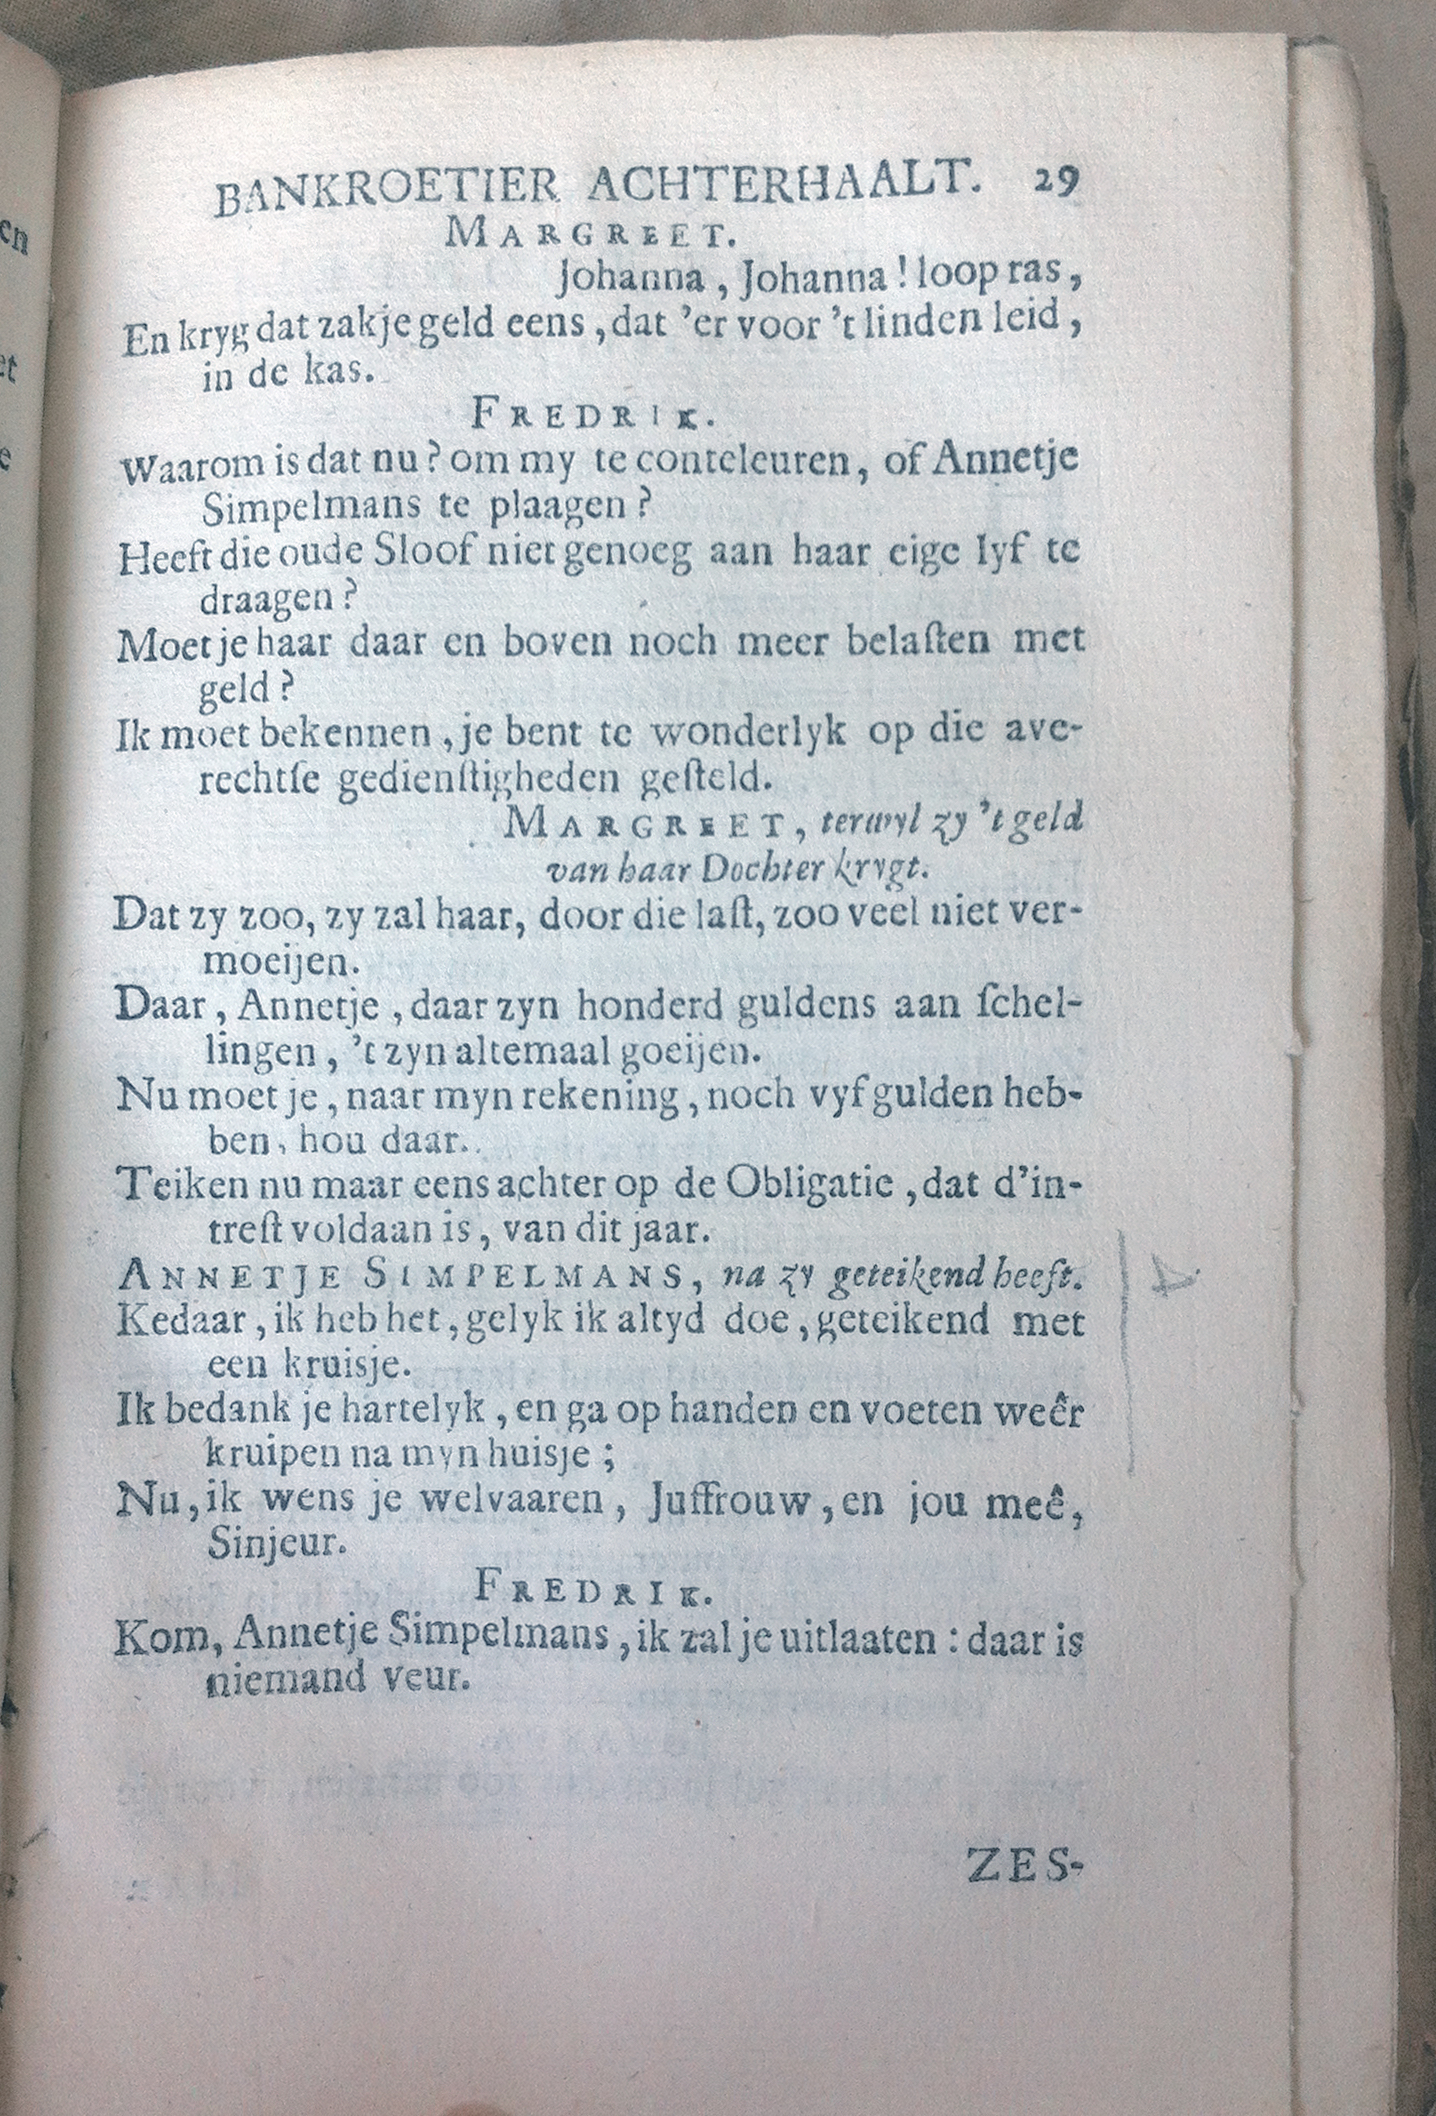 BANKROETIER ACHTERHAALT. 29
MARGREET.
Johanna, Johanna! loop ras,
En kryg dat zakje geld eens, dat 'er voor 't linden leid,
in de kas.
FREDRIK.
Waarom is dat nu? om my te conteleuren, of Annetje
Simpelmans te plaagen?
Heeft die oude Sloof niet genoeg aan haar eige lyf te
draagen?
Moet je haar daar en boven noch meer belaſten met
geld?
Ik moet bekennen, je bent te wonderlyk op die ave-
rechtſe gedienſtigheden geſteld.
MARGREET, terwyl zy 't geld
van haar Dochter krygt.
Dat zy zoo, zy zal haar, door die laſt, zoo veel niet ver-
moeijen.
Daar, Annetje, daar zyn honderd guldens aan ſchel-
lingen, 't zyn altemaal goeijen.
Nu moet je, naar myn rekening, noch vyf gulden heb-
ben, hou daar.
Teiken nu maar eens achter op de Obligatie, dat d'in-
treſt voldaan is, van dit jaar.
ANNETJE SIMPELMANS, na zy geteikend heeft.
Kedaar, ik heb het, gelyk ik altyd doe, geteikend met
een kruisje.
Ik bedank je hartelyk, en ga op handen en voeten weêr
kruipen na myn huisje;
Nu, ik wens je welvaaren, Juffrouw, en jou meê,
Sinjeur.
FREDRIK.
Kom, Annetje Simpelmans, ik zal je uitlaaten: daar is
niemand veur.
ZES-